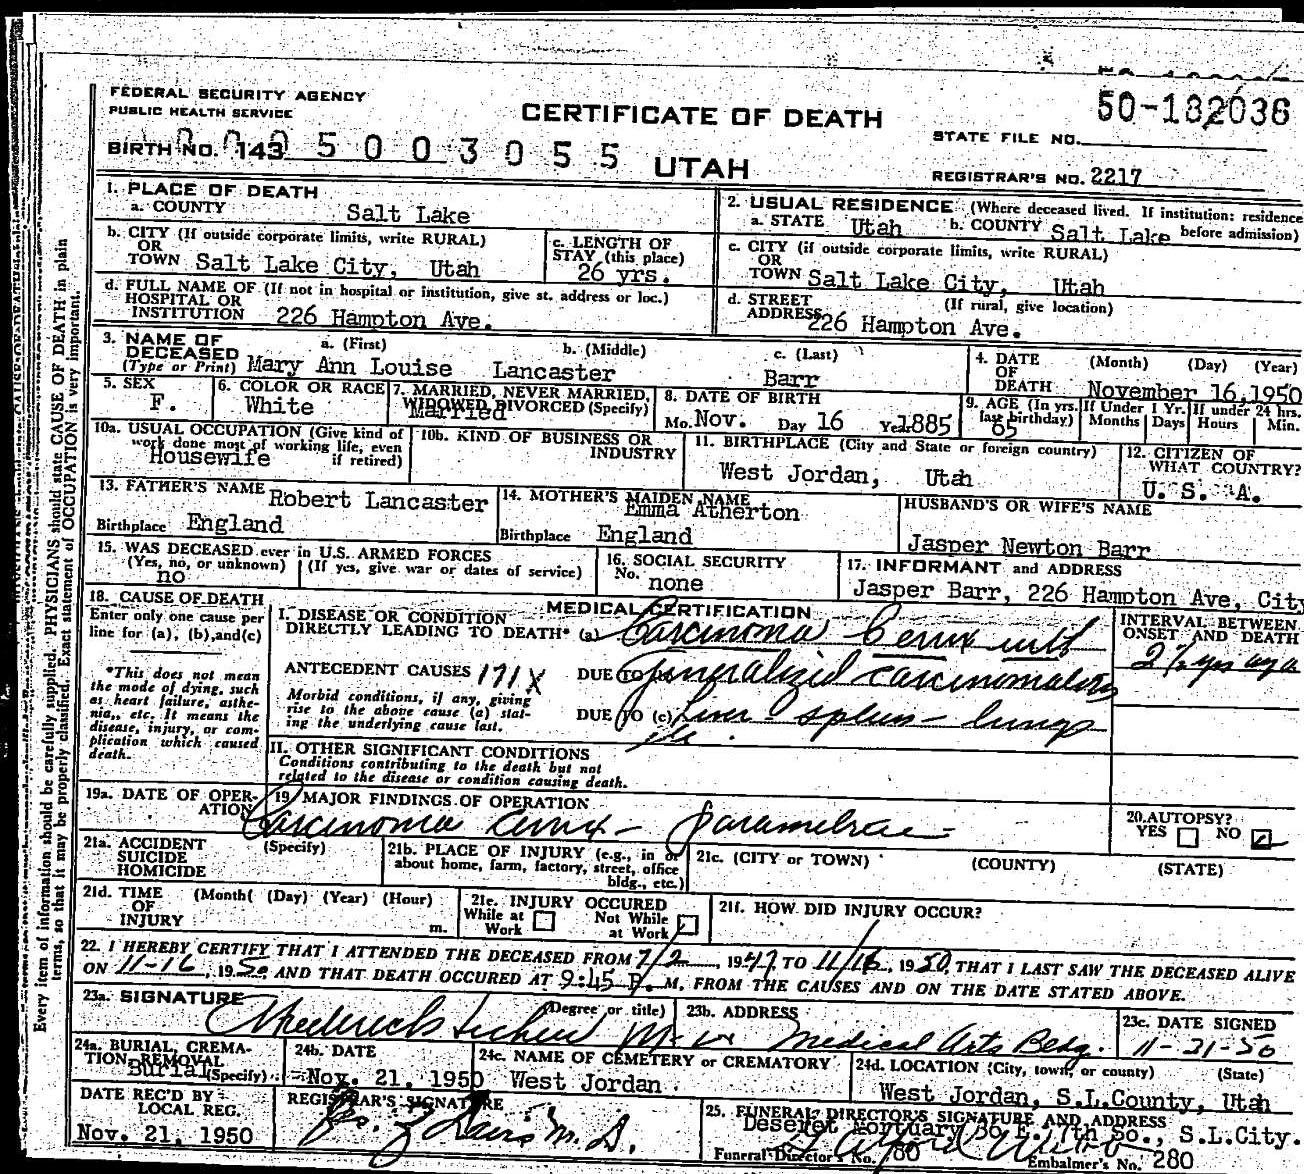 FEDERAL SECURITY AGENCY
PUBLIC HEALTH SERVICE
CERTIFICATE OF DEATH
50-182036
STATE FILE NO.
BIRTH NO. 143
5003055
UTAH
REGISTRAR'S NO. 2217
1. PLACE OF DEATH
a. COUNTY Salt Lake
2. USUAL RESIDENCE (Where deceased lived. If institution: residence before admission)
a. STATE Utah b. COUNTY Salt Lake
b. CITY (If outside corporate limits, write RURAL)
OR
TOWN Salt Lake City, Utah
c. LENGTH OF
STAY (this place)
26 yrs.
c. CITY (if outside corporate limits, write RURAL)
OR
TOWN Salt Lake City, Utah
d. FULL NAME OF (If not in hospital or institution, give st. address or loc.)
HOSPITAL OR
INSTITUTION 226 Hampton Ave.
d. STREET (If rural, give location)
ADDRESS 226 Hampton Ave.
3. NAME OF
DECEASED
(Type or Print)
a. (First) b. (Middle) c. (Last)
Mary Ann Louise Lancaster Barr
4. DATE
OF
DEATH
(Month) (Day) (Year)
November 16, 1950
5. SEX
F.
6. COLOR OR RACE
White
7. MARRIED, NEVER MARRIED,
WIDOWED DIVORCED (Specify)
Married
8. DATE OF BIRTH
Mo. Nov. Day 16 Year 1885
9. AGE (In yrs.
last birthday)
65
If Under 1 Yr.
Months Days
If under 24 hrs.
Hours Min.
10a. USUAL OCCUPATION (Give kind of
work done most of working life, even
if retired)
Housewife
10b. KIND OF BUSINESS OR
INDUSTRY
11. BIRTHPLACE (City and State or foreign country)
West Jordan, Utah
12. CITIZEN OF
WHAT COUNTRY?
U. S. A.
13. FATHER'S NAME Robert Lancaster
Birthplace England
14. MOTHER'S MAIDEN NAME
Emma Atherton
Birthplace England
HUSBAND'S OR WIFE'S NAME
Jasper Newton Barr
15. WAS DECEASED ever in U.S. ARMED FORCES
(Yes, no, or unknown) (If yes, give war or dates of service)
no
16. SOCIAL SECURITY
No. none
17. INFORMANT and ADDRESS
Jasper Barr, 226 Hampton Ave, City
18. CAUSE OF DEATH
Enter only one cause per
line for (a), (b), and (c)
*This does not mean
the mode of dying, such
as heart failure, asthe-
nia, etc. It means the
disease, injury, or com-
plication which caused
death.
MEDICAL CERTIFICATION
I. DISEASE OR CONDITION
DIRECTLY LEADING TO DEATH* (a) Carcinoma Cervix with
ANTECEDENT CAUSES 171X
DUE TO (b) generalized carcinomatosis
Morbid conditions, if any, giving
rise to the above cause (a) stat-
ing the underlying cause last.
DUE TO (c) Liver - spleen - lungs
etc.
INTERVAL BETWEEN
ONSET AND DEATH
2 1/2 yrs ago
II. OTHER SIGNIFICANT CONDITIONS
Conditions contributing to the death but not
related to the disease or condition causing death.
19a. DATE OF OPER-
ATION
19. MAJOR FINDINGS OF OPERATION
Carcinoma cervix - parametrae -
20. AUTOPSY?
YES NO
21a. ACCIDENT
SUICIDE
HOMICIDE
(Specify)
21b. PLACE OF INJURY (e.g., in or
about home, farm, factory, street, office
bldg., etc.)
21c. (CITY or TOWN) (COUNTY) (STATE)
21d. TIME
OF
INJURY
(Month( (Day) (Year) (Hour)
m.
21e. INJURY OCCURED
While at Work Not While at Work
21f. HOW DID INJURY OCCUR?
22. I HEREBY CERTIFY THAT I ATTENDED THE DECEASED FROM 7/2, 1947 TO 11/16, 1950, THAT I LAST SAW THE DECEASED ALIVE
ON 11-16, 1950 AND THAT DEATH OCCURED AT 9:45 P. M, FROM THE CAUSES AND ON THE DATE STATED ABOVE.
23a. SIGNATURE (Degree or title)
23b. ADDRESS
Medical Arts Bldg.
23c. DATE SIGNED
11-21-50
24a. BURIAL, CREMA-
TION, REMOVAL
Burial (Specify)
24b. DATE
Nov. 21, 1950
24c. NAME OF CEMETERY or CREMATORY
West Jordan
24d. LOCATION (City, town, or county) (State)
West Jordan, S.L.County, Utah
DATE REC'D BY
LOCAL REG.
Nov. 21, 1950
REGISTRAR'S SIGNATURE
M. D.
25. FUNERAL DIRECTOR'S SIGNATURE AND ADDRESS
Deseret Mortuary 36 E. 7th So., S.L.City.
Funeral Director's No. 80
Embalmer's No. 280
Every item of information should be carefully supplied. PHYSICIANS should state CAUSE OF DEATH in plain
terms, so that it may be properly classified. Exact statement of OCCUPATION is very important.